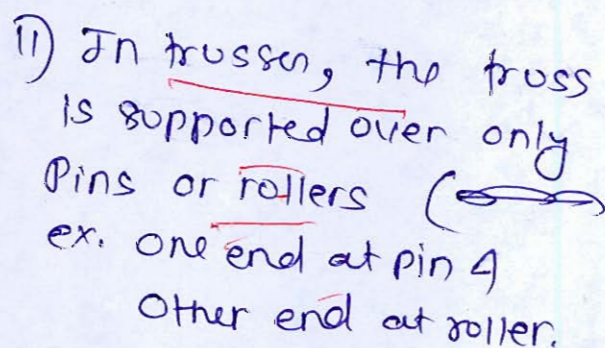 11) In trusses, the truss
is supported over only
Pins or rollers (
ex. one end at pin &
Other end at roller.